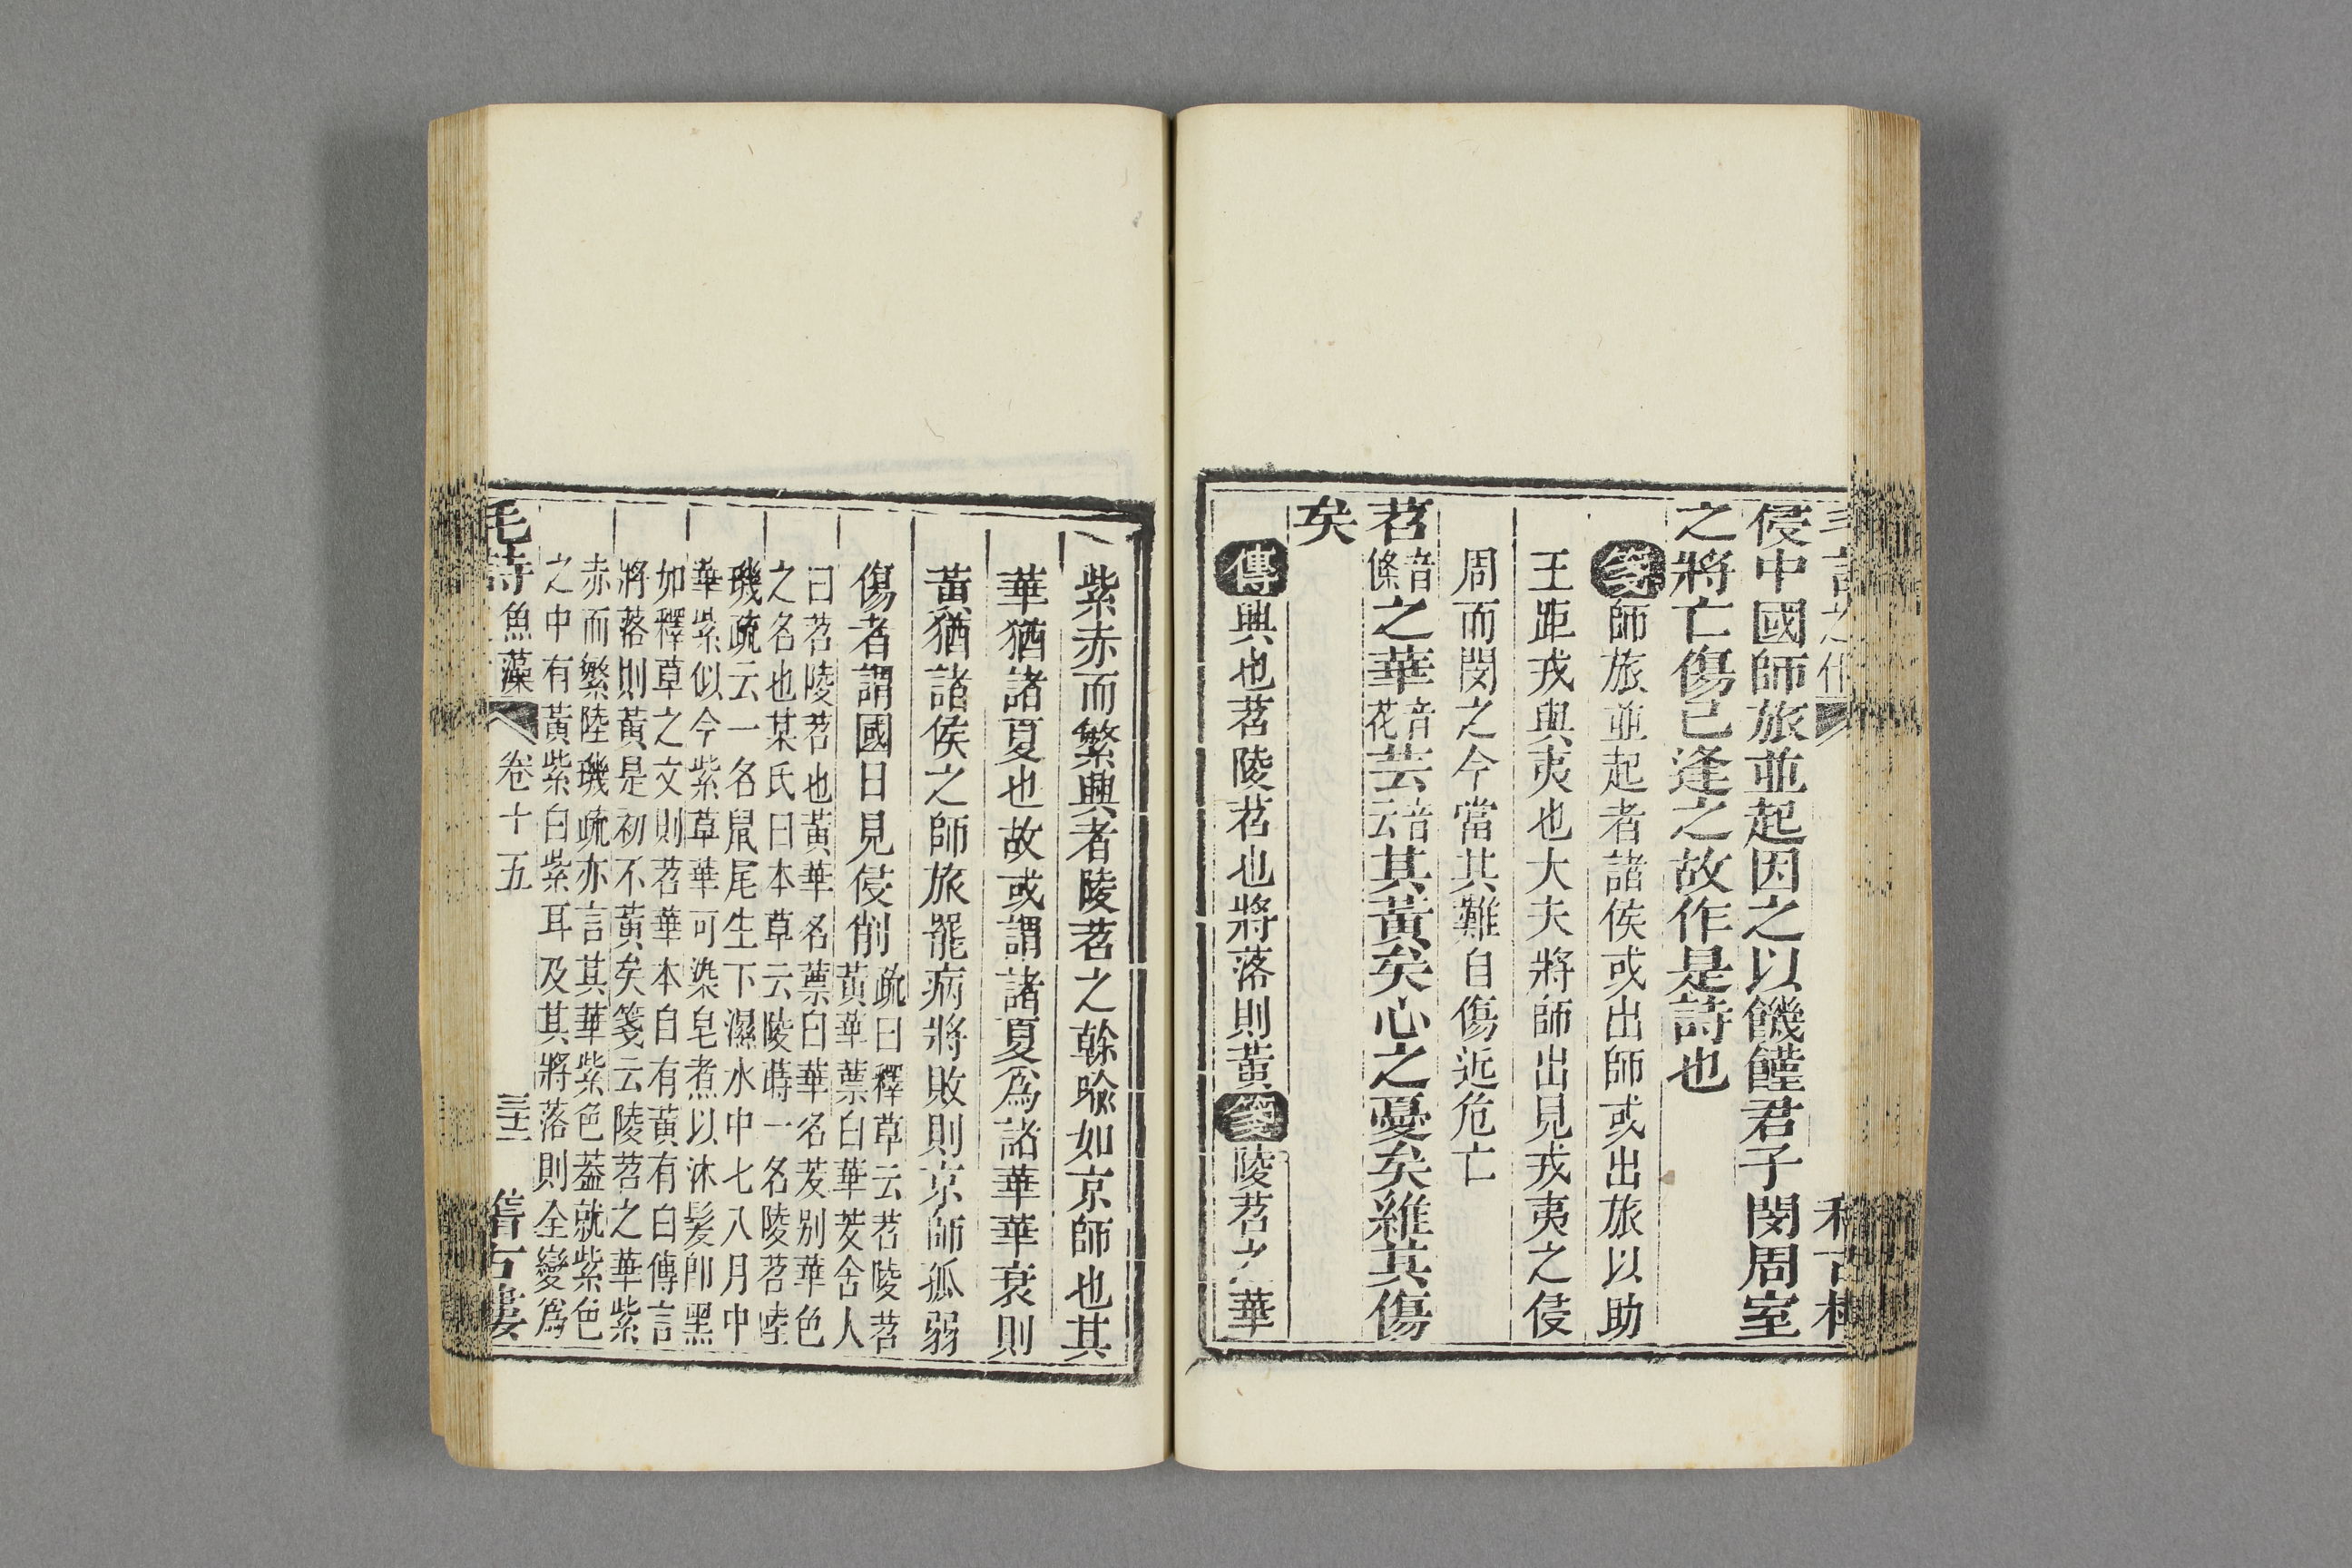 侵中國師旅並起因之以饑饉君子閔周室
之將亡傷己逢之故作是詩也
箋師旅並起者諸侯或出師或出旅以助
王距戎與夷也大夫將師出見戎夷之侵
周而閔之今當其難自傷近危亡
苕音條之華音花芸音云其黃矣心之憂矣維其傷
矣
傳興也苕陵苕也將落則黃箋陵苕之華
紫赤而繁興者陵苕之榦喻如京師也其
華猶諸夏也故或謂諸夏爲諸華華衰則
黃猶諸侯之師旅罷病將敗則京師孤弱
傷者謂國日見侵削
疏曰釋草云苕陵苕
黃華葉白華茇舍人
曰苕陵苕也黃華名蔈白華名茇別華色
之名也某氏曰本草云陵蒔一名陵苕陸
璣疏云一名鼠尾生下濕水中七八月中
華紫似今紫草華可染皂煮以沐髮卽黑
如釋草之文則苕華本自有黃有白傳言
將落則黃是初不黃矣箋云陵苕之華紫
赤而繁陸璣疏亦言其華紫色葢就紫色
之中有黃紫白紫耳及其將落則全變爲
毛詩 魚藻 卷十五 三十二